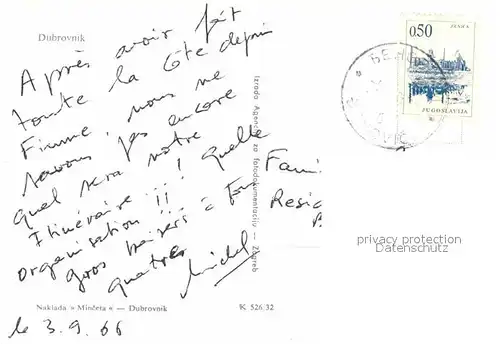 Dubrovnik
Après avoir fait
toute la Côte depuis
Fiume, nous ne
savons pas encore
quel sera notre
Itinéraire !!! Quelle
organisation !!
gros baisers à
quatres
Michel
Naklada » Minčeta « — Dubrovnik
K 526 32
le 3.9.66
Izrada Agencija za fotodokumentaciju — Zagreb
Fami
Resid
0,50
ZENICA
JUGOSLAVIJA
privacy protection
Datenschutz